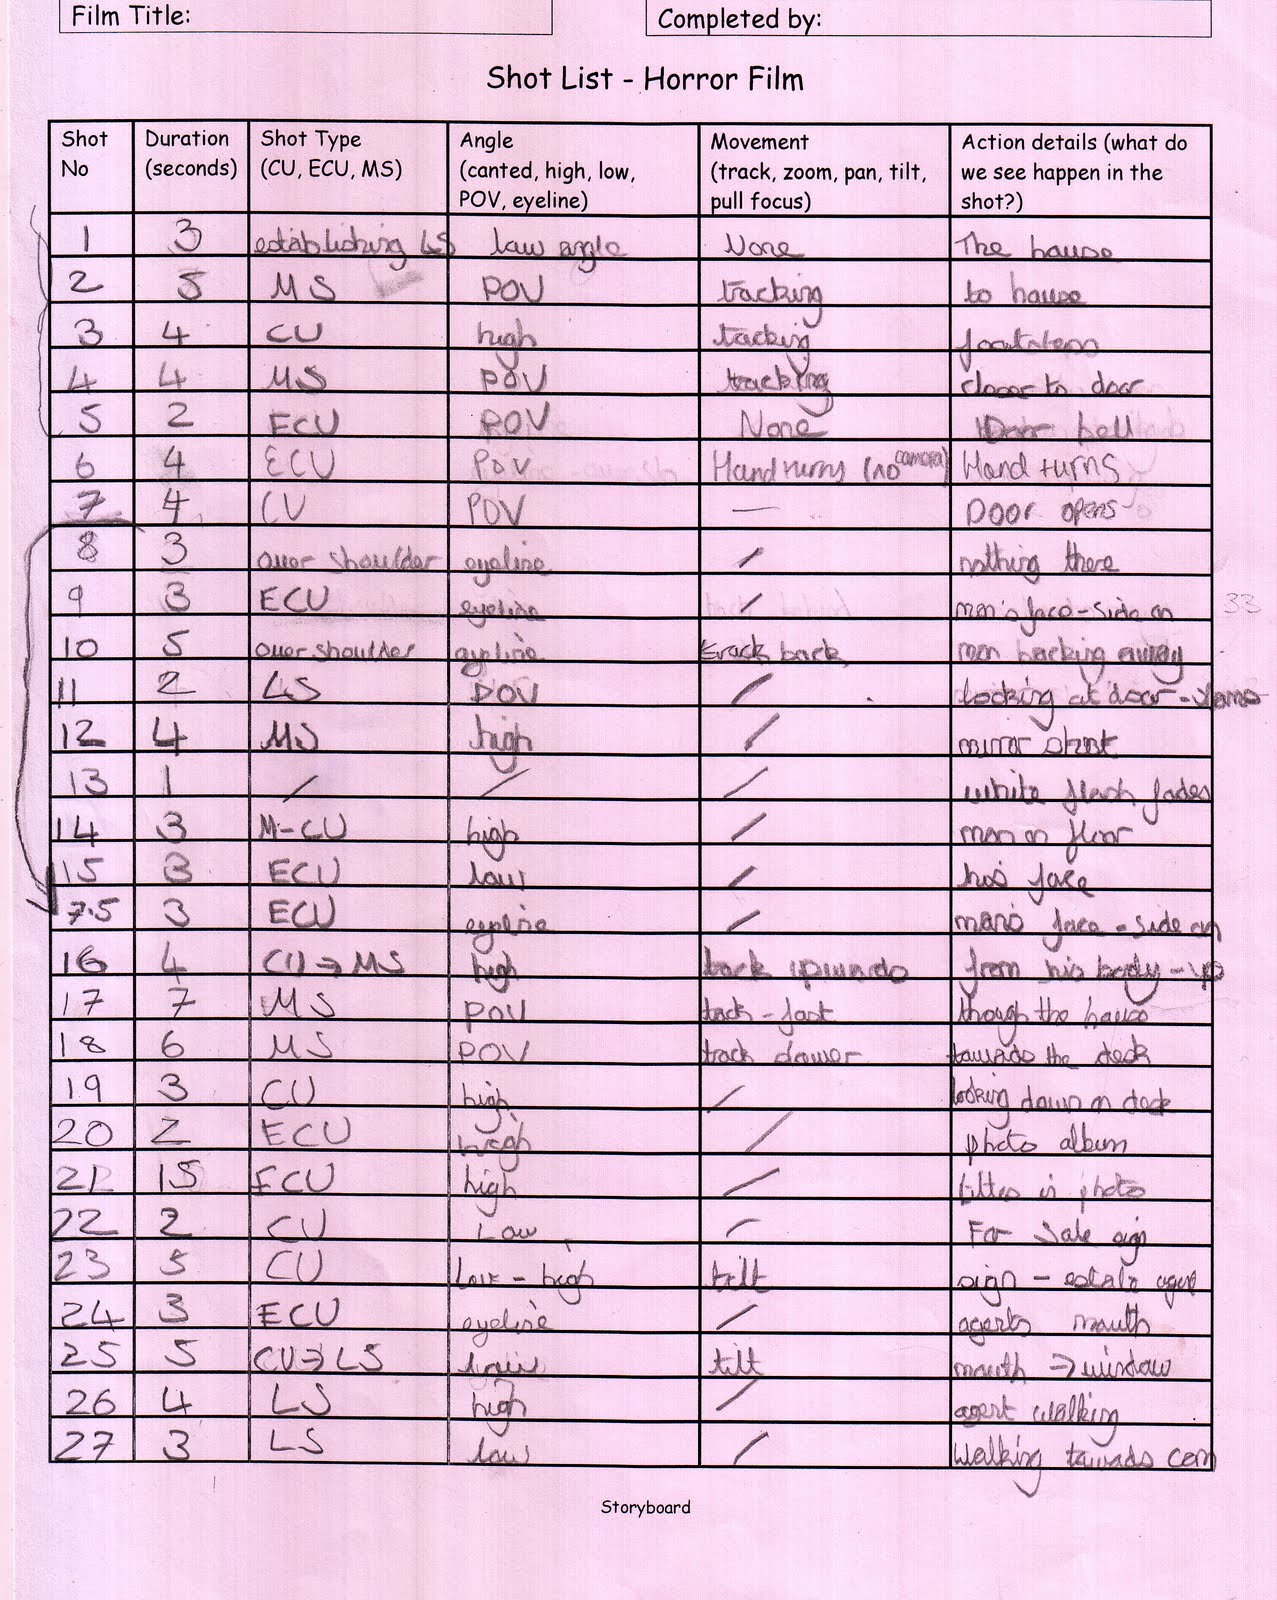 Film Title:
Completed by:
Shot List - Horror Film
Shot No
Duration (seconds)
Shot Type (CU, ECU, MS)
Angle (canted, high, low, POV, eyeline)
Movement (track, zoom, pan, tilt, pull focus)
Action details (what do we see happen in the shot?)
1 3 establishing LS low angle None The house
2 5 MS POV tracking to house
3 4 CU high tacking footsteps
4 4 MS POV tracking closer to door
5 2 ECU POV None Door bell
6 4 ECU POV Hand turns (no camera) Hand turns
7 4 CU POV — Door opens
8 3 over shoulder eyeline / nothing there
9 3 ECU eyeline / man's face - side on
10 5 over shoulder eyeline track back man backing away
11 2 LS POV / looking at door -
12 4 MS high / mirror shot
13 1 / / / white flash fades
14 3 M-CU high / man on floor
15 3 ECU low / his face
7.5 3 ECU eyeline / mans face - side on
16 4 CU → MS high track upwards from his body - up
17 7 MS POV tack - fast though the house
18 6 MS POV track slower towards the desk
19 3 CU high / looking down on desk
20 2 ECU high / photo album
21 15 ECU high / titles in photo
22 2 CU Low / For Sale sign
23 5 CU Low - high tilt sign - estate agent
24 3 ECU eyeline / agents mouth
25 5 CU → LS low tilt mouth → window
26 4 LS high / agent walking
27 3 LS low / Walking towards cam
33
Storyboard